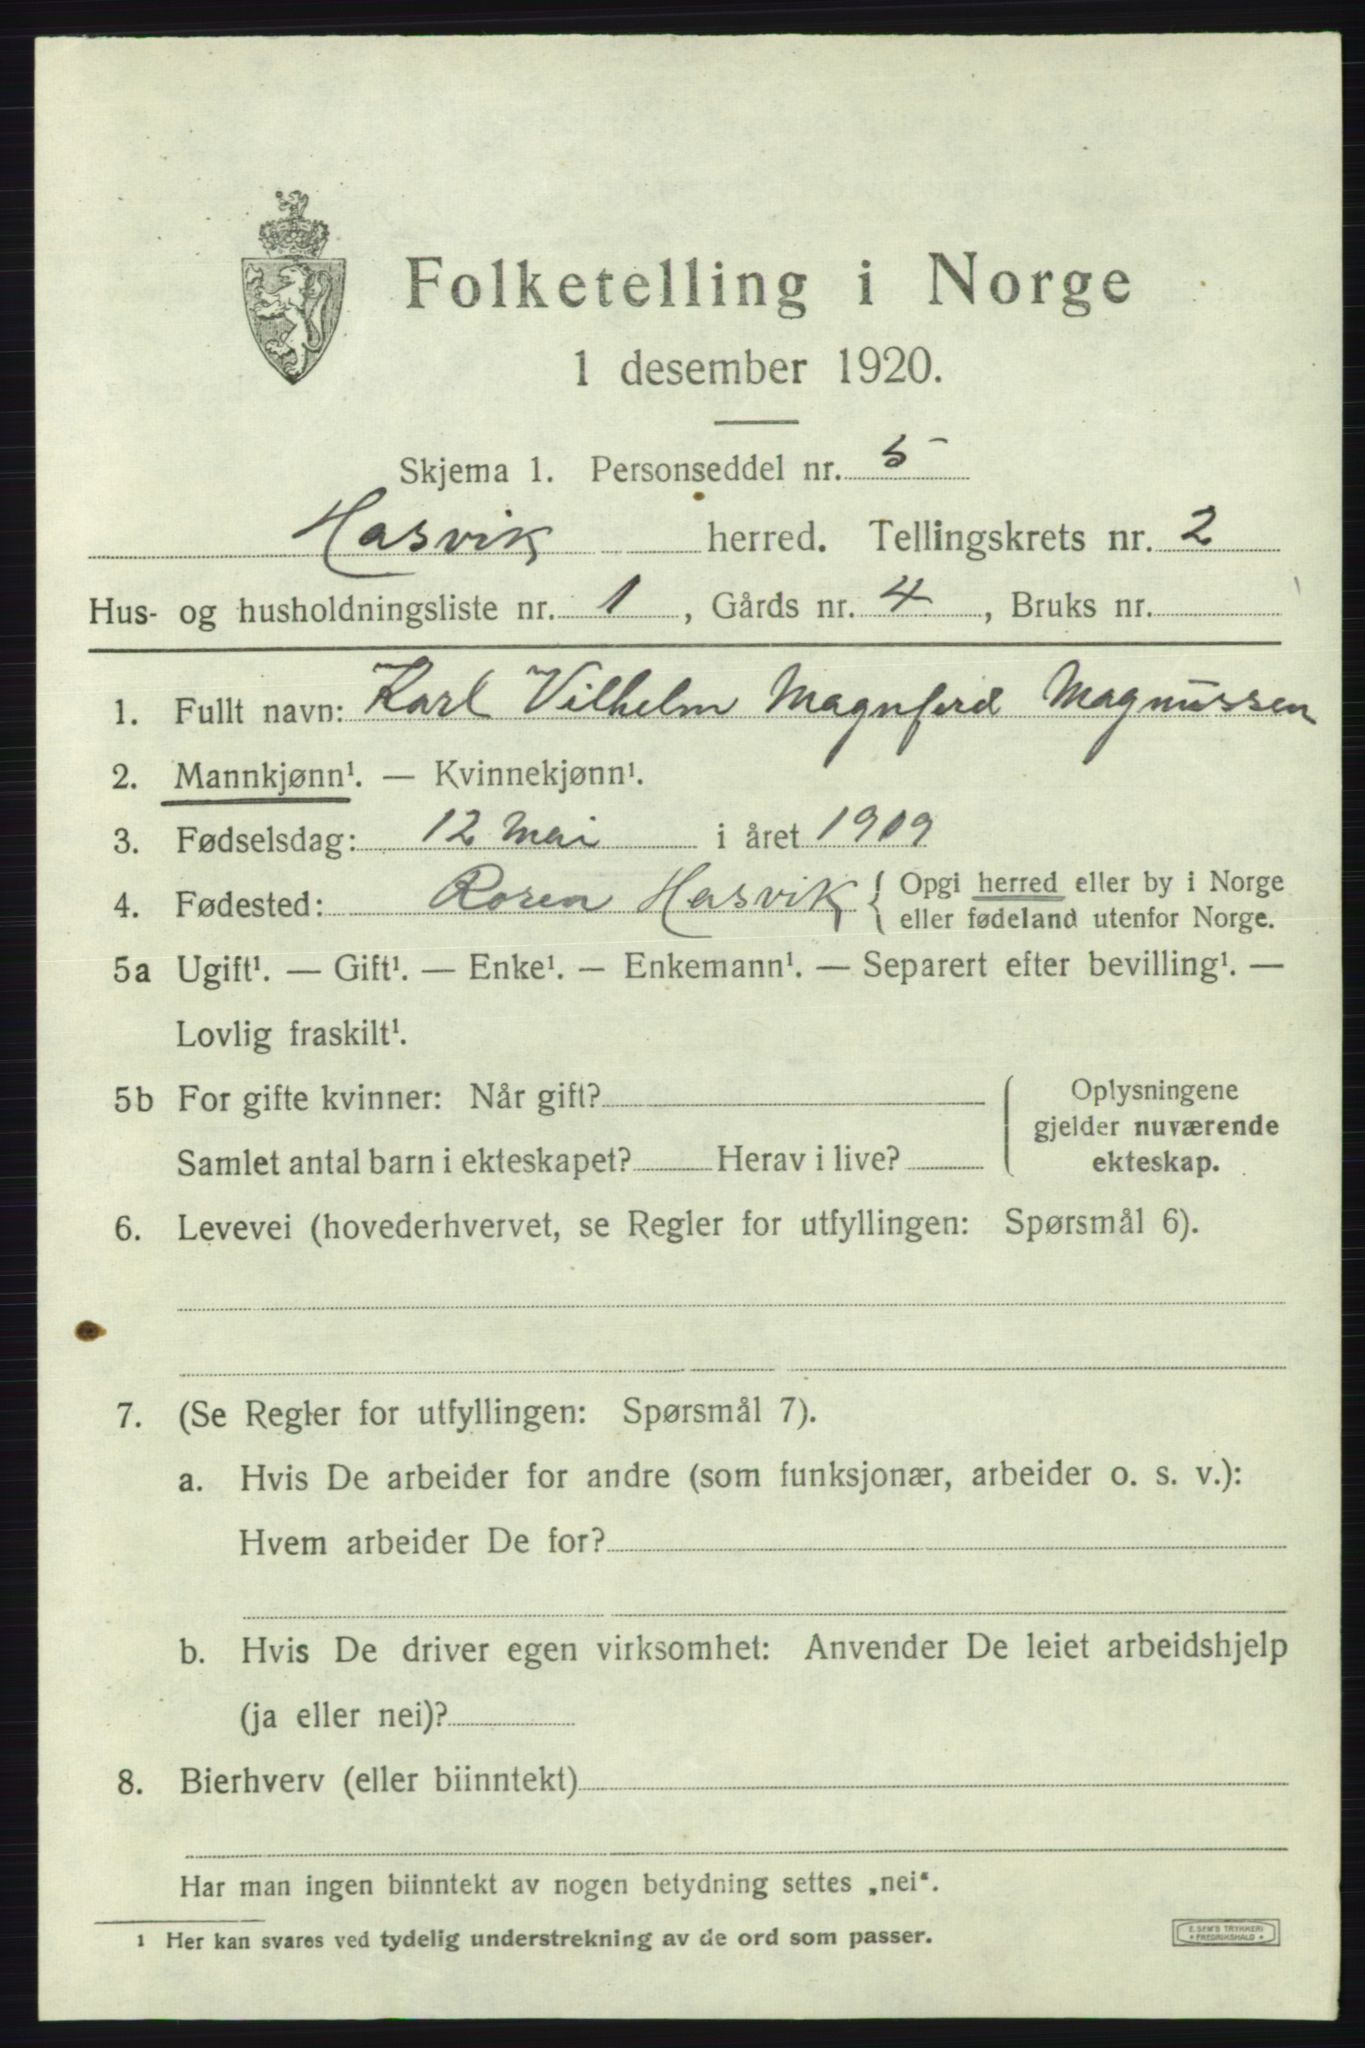 Folketelling i Norge
1 desember 1920.
Skjema 1. Personseddel nr. 5
Hasvik herred. Tellingskrets nr. 2
Hus- og husholdningsliste nr. 1, Gårds nr. 4, Bruks nr.
1. Fullt navn: Karl Vilhelm Magnferd Magnussen
2. Mannkjønn¹. — Kvinnekjønn¹.
3. Fødselsdag: 12 Mai i året 1909
4. Fødested: Hasvik { Opgi herred eller by i Norge
eller fødeland utenfor Norge.
5a Ugift¹. — Gift¹. — Enke¹. — Enkemann¹. — Separert efter bevilling¹. —
Lovlig fraskilt¹.
5b For gifte kvinner: Når gift?
Samlet antal barn i ekteskapet? Herav i live?
Oplysningene
gjelder nuværende
ekteskap.
6. Levevei (hovederhvervet, se Regler for utfyllingen: Spørsmål 6).
7. (Se Regler for utfyllingen: Spørsmål 7).
a. Hvis De arbeider for andre (som funksjonær, arbeider o. s. v.):
Hvem arbeider De for?
b. Hvis De driver egen virksomhet: Anvender De leiet arbeidshjelp
(ja eller nei)?
8. Bierhverv (eller biinntekt)
Har man ingen biinntekt av nogen betydning settes „nei“.
¹ Her kan svares ved tydelig understrekning av de ord som passer.
E. SEM'S TRYKKERI
• FREDRIKSHALD •